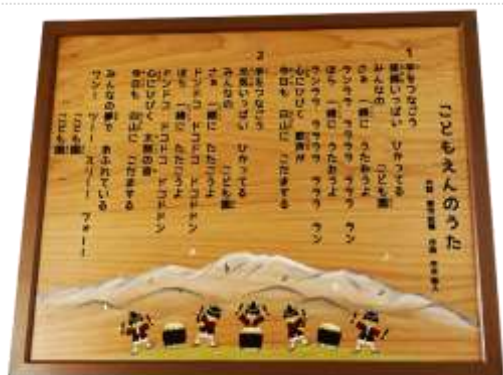 こどもえんのうた
1 手をつなごう
いっぱい ひかってる
みんなの こども園
さぁ 一緒に うたおうよ
ランラン ラララ ラララ ラン
ほら 一緒に うたおうよ
ランラン ラララ ラララ ラン
心にひびく 歌声が
今日も 白山に こだまする
2 手をつなごう
元気いっぱい ひかってる
みんなの こども園
さぁ 一緒に たたこうよ
ドンドコ ドコドコ ドコドドン
ほら 一緒に たたこうよ
ドンドコ ドコドコ ドコドドン
心にひびく 太鼓の音
今日も 白山に こだまする
みんなの夢で あふれている
ワン! ツー! スリー! フォー!
こども園
こども園